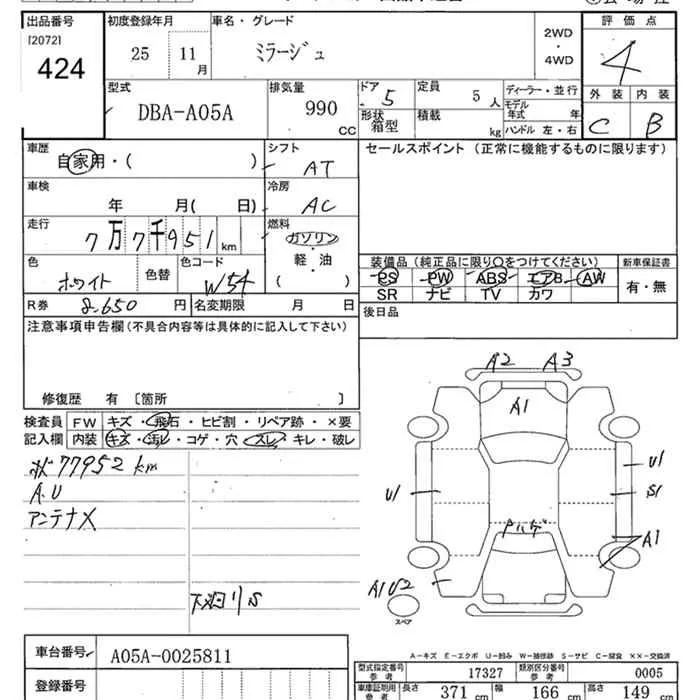 出品番号 初度登録年月 車名・グレード 評価点
[2072]
424 25 11月 ミラージュ 2WD・4WD 4
型式 排気量 ドア 5 定員 5人 ディーラー・並行 外装 内装
DBA-A05A 990cc 形状 箱型 積載 kg モデル年式 年 C B
ハンドル 左・右
車歴 シフト セールスポイント (正常に機能するものに限ります)
自家用・( ) AT
車検 冷房
年 月( 日) AC
走行 燃料
7万7千951km ガソリン
色 色替 色コード 軽・油 装備品 (純正品に限り〇をつけてください) 新車保証書
ホワイト W54 ( ) PS PW ABS エアB AW 有・無
SR ナビ TV カワ
R券 8,650円 名変期限 月 日 後日品
注意事項申告欄 (不具合内容等は具体的に記入して下さい)
修復歴 有 〔箇所 〕
検査員 FW キズ・飛石・ヒビ割・リペア跡・×要
記入欄 内装 キズ・汚レ・コゲ・穴・スレ・キレ・破レ
77952km
A.U
アンテナX
A2 A3
A1
U1
U1
S1
A1
A1U2
スペア
A-キズ E-エクボ U-凹み W-補修跡 S-サビ C-腐食 ××-交換済
車台番号 A05A-0025811
型式指定番号参考 17327 類別区分番号参考 0005
登録番号
車庫証明用参考 長さ 371cm 幅 166cm 高さ 149cm